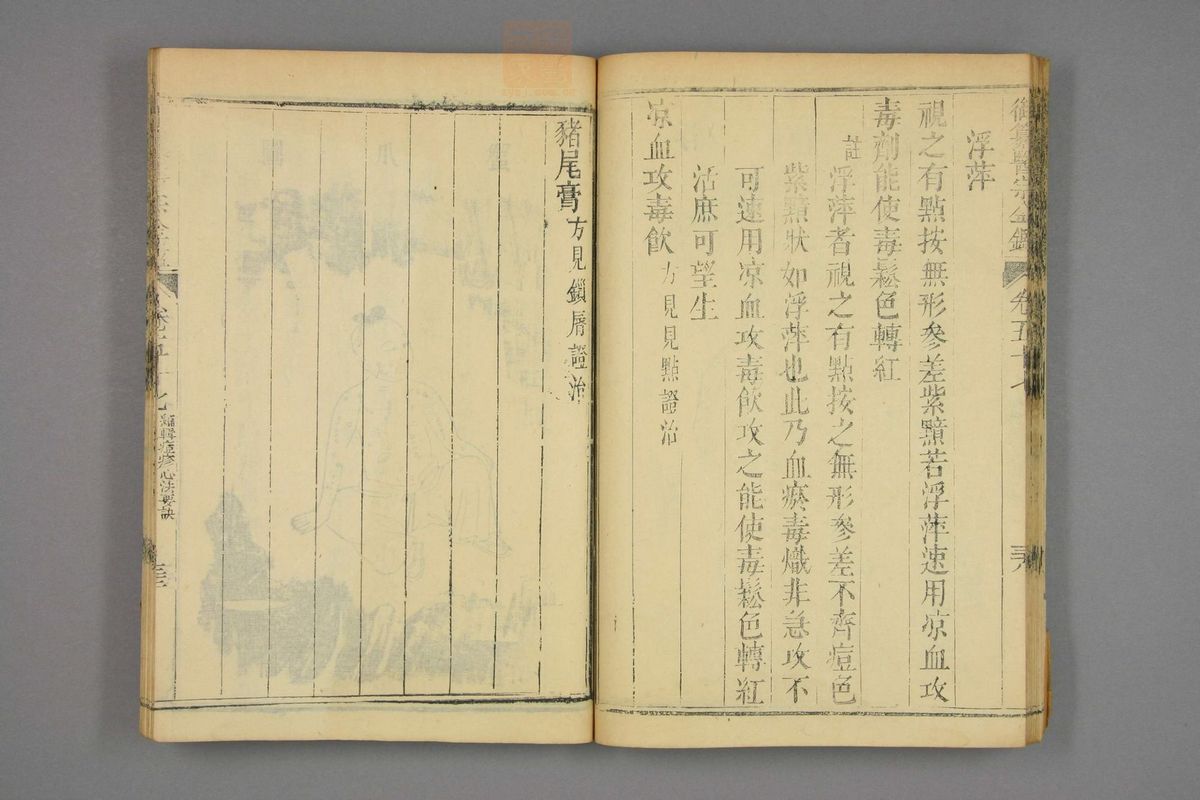 御纂醫宗金鑑 卷五十七
浮萍
視之有點按無形參差紫黯若浮萍速用凉血攻
毒劑能使毒鬆色轉紅
註 浮萍者視之有點按之無形參差不齊痘色
紫黯狀如浮萍也此乃血瘀毒熾非急攻不
可速用凉血攻毒飲攻之能使毒鬆色轉紅
活庶可望生
凉血攻毒飲 方見見點證治
豬尾膏 方見鎖脣證治
卷五十七 編輯痘疹心法要訣